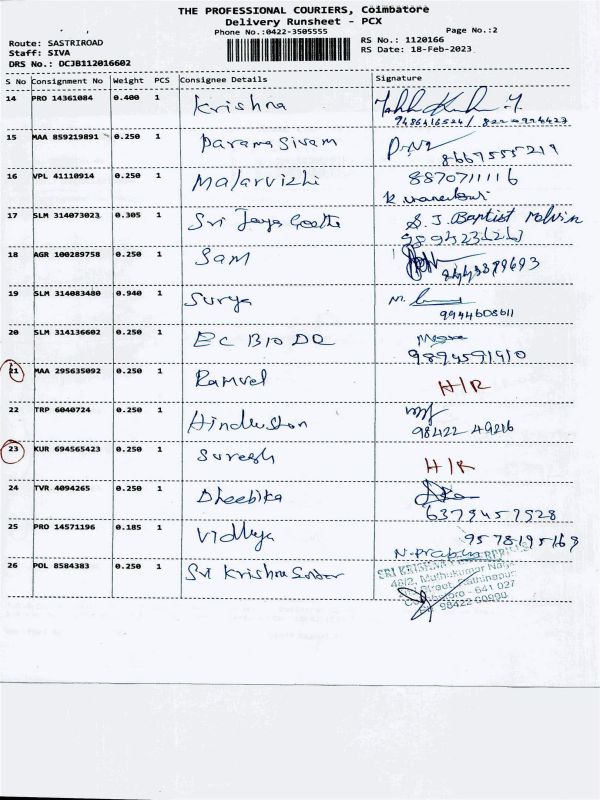 THE PROFESSIONAL COURIERS, Coimbatore
Delivery Runsheet - PCX
Phone No.:0422-3505555
Page No.:2
Route: SASTRIROAD
Staff: SIVA
DRS No.: DCJB112016602
RS No.: 1120166
RS Date: 18-Feb-2023
S No Consignment No Weight PCS Consignee Details Signature
14 PRO 14361084 0.400 1 Krishna
15 MAA 859219891 0.250 1 Parama Sivam
8667555219
16 VPL 41110914 0.250 1 Malarvizhi 8870711116
17 SLM 314073023 0.305 1 Sri Jaya Geetha S. J. Baptist Melvin
18 AGR 100289758 0.250 1 Sam
19 SLM 314083480 0.940 1 Surya
9944608611
20 SLM 314136602 0.250 1 BC BIO DQ
9894591910
21 MAA 295635092 0.250 1 Ramvel H/R
22 TRP 6040724 0.250 1 Hindustan
98422 49216
23 KUR 694565423 0.250 1 Suresh H/R
24 TVR 4094265 0.250 1 Dheebika
6379457928
25 PRO 14571196 0.185 1 Vidhya 9578195169
N. Prabhu
26 POL 8584383 0.250 1 Sri Krishna
SRI KRISHNA
46/2, Muthukumar Nagar
Street, Rathinapuri
Coimbatore - 641 027